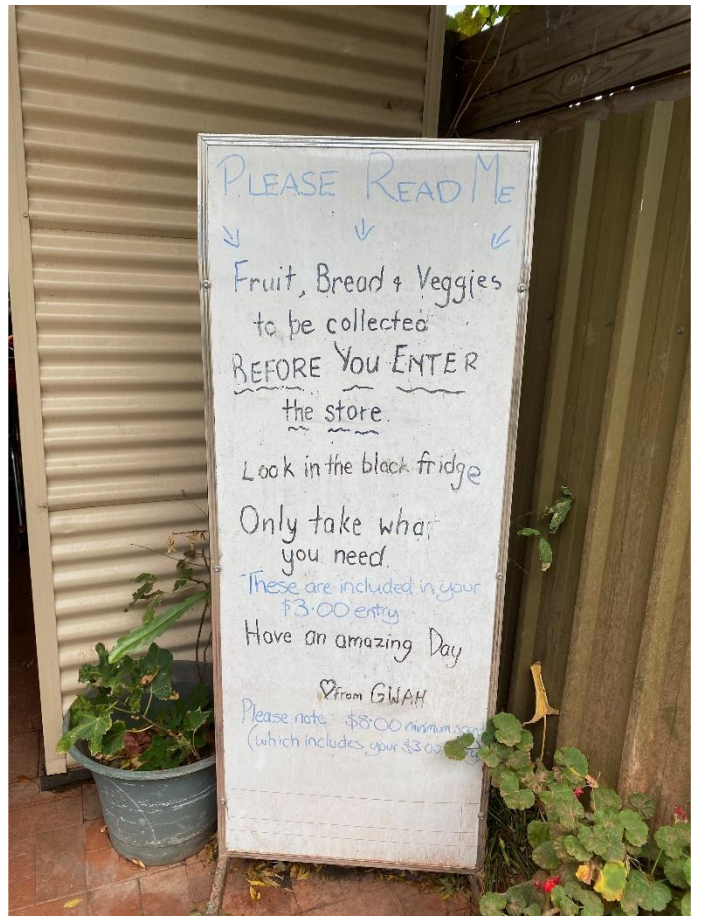 PLEASE READ ME
Fruit, Bread & Veggies
to be collected
BEFORE YOU ENTER
the store.
Look in the black fridge
Only take what
you need.
These are included in your
$3.00 entry
Have an amazing Day
♡from GWAH
Please note: $8.00 minimum
(which includes your $3.00